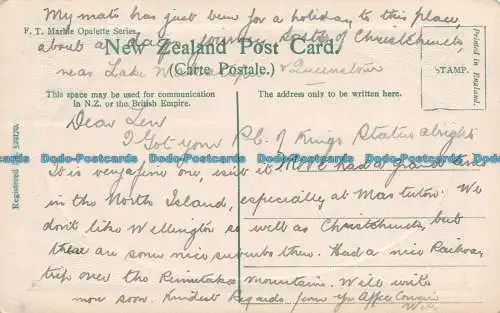 My mate has just been for a holiday to this place,
about a days journey South of Christchurch
near Lake & Queenstown
F. T. Marble Opalette Series.
New Zealand Post Card.
(Carte Postale.)
STAMP.
Printed in England.
This space may be used for communication
in N.Z. or the British Empire.
The address only to be written here.
Registered No.
Dear Len
I Got your P.C. of Kings Statue alright
It is very fine one, isn't it We've had a grand time
in the North Island, especially at Masterton. We
don't like Wellington so well as Christchurch, but
there are some nice suburbs there. Had a nice Railway
trip over the Rimutaka Mountains. Will write
more soon. Kindest Regards from Yr Affec Cousin
Will
Dodo-Postcards Dodo-Postcards Dodo-Postcards Dodo-Postcards Dodo-Postcards